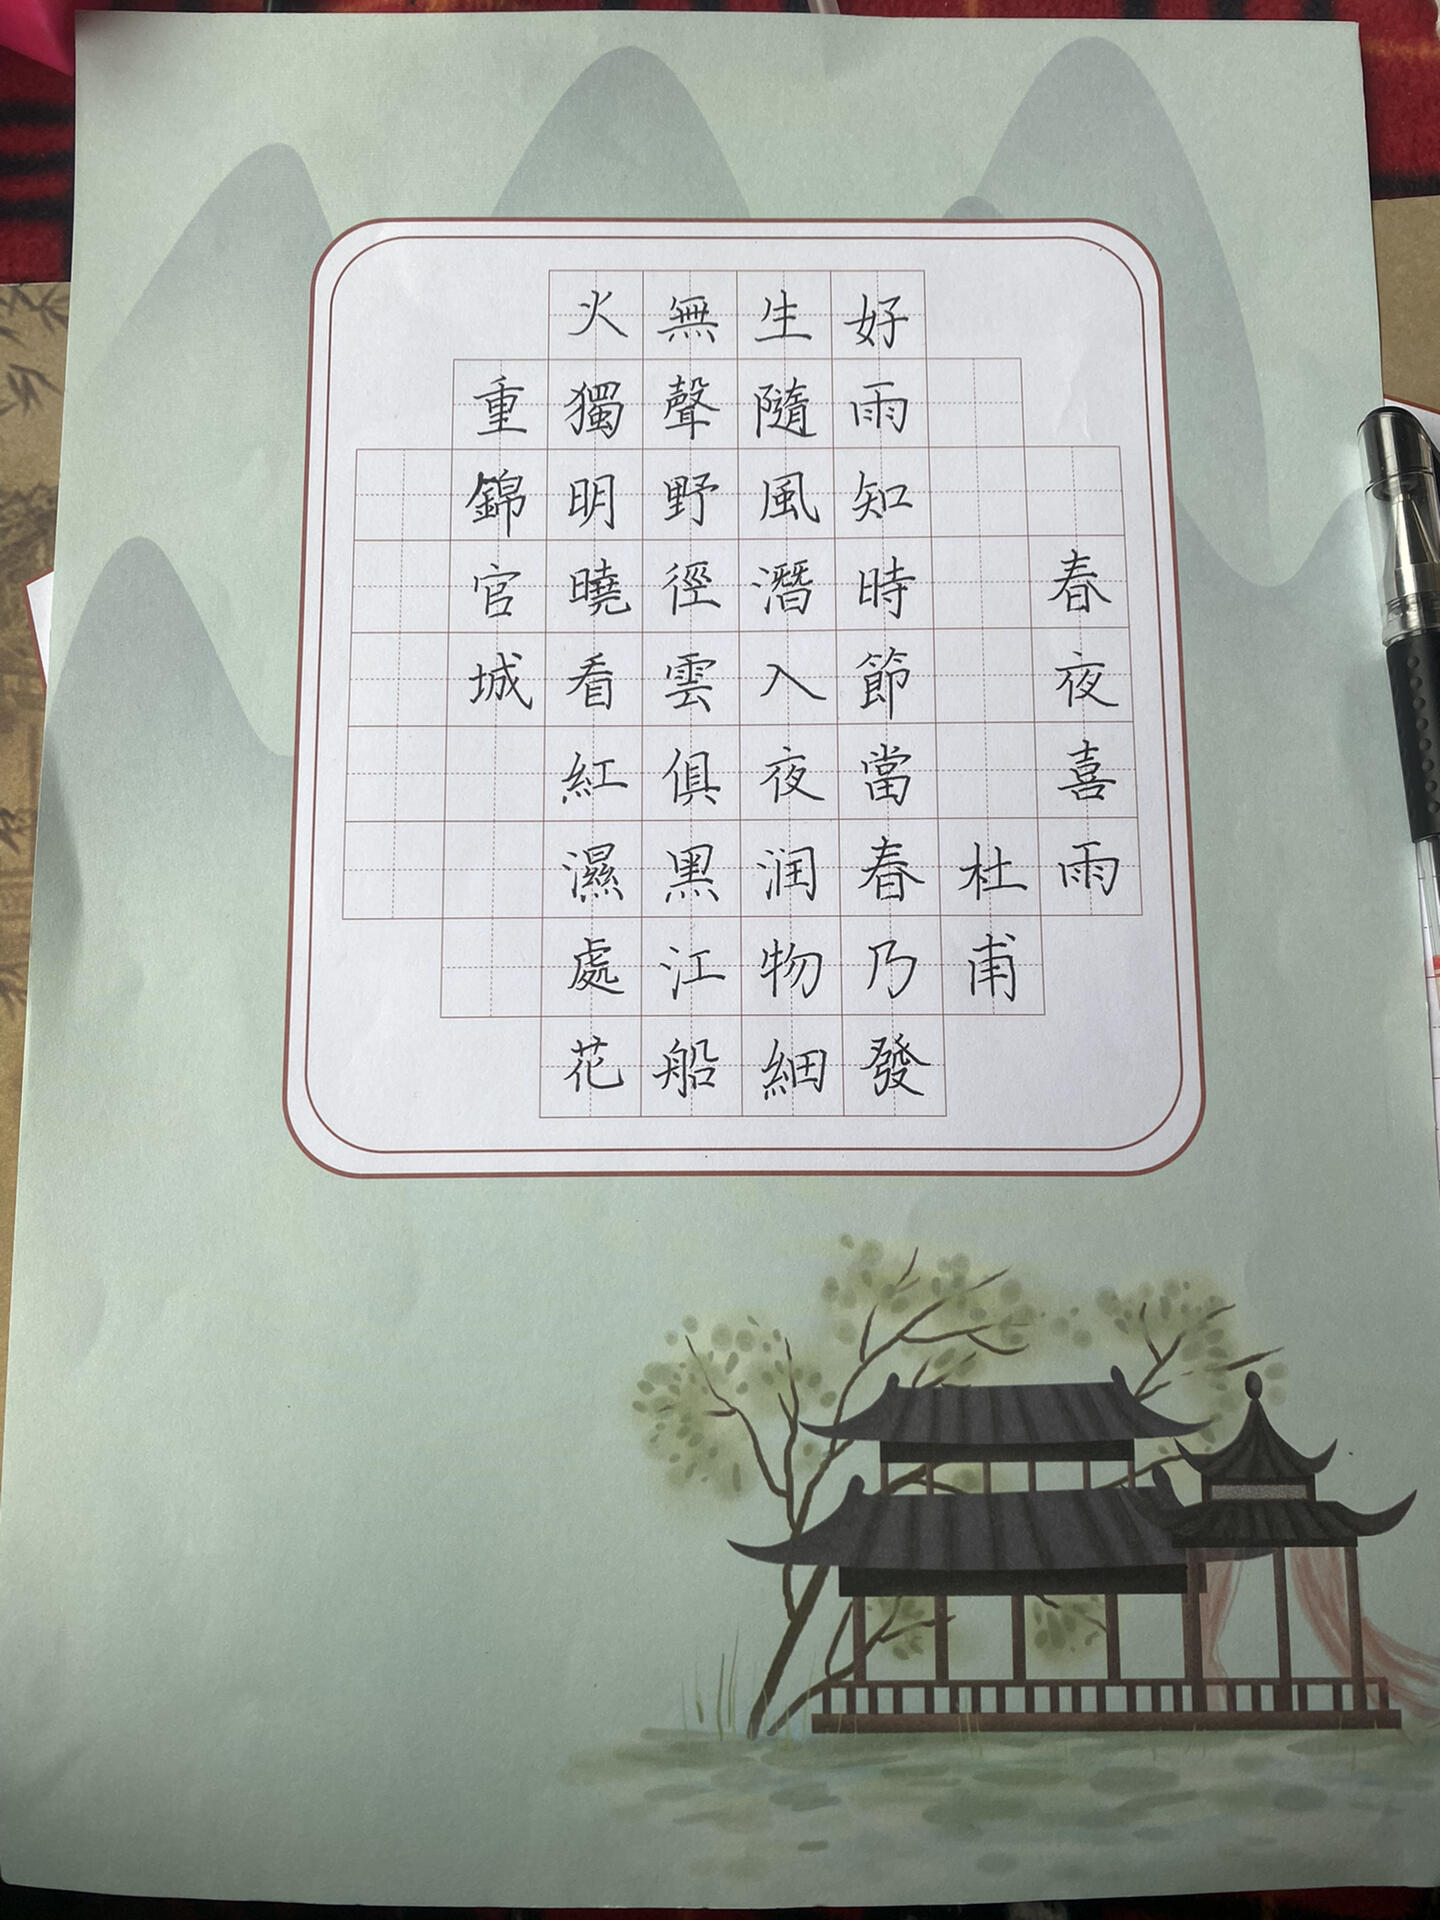 春夜喜雨
杜甫
好雨知時節當春乃發
生隨風潛入夜润物細
無聲野徑雲俱黑江船
火獨明曉看紅濕處花
重錦官城